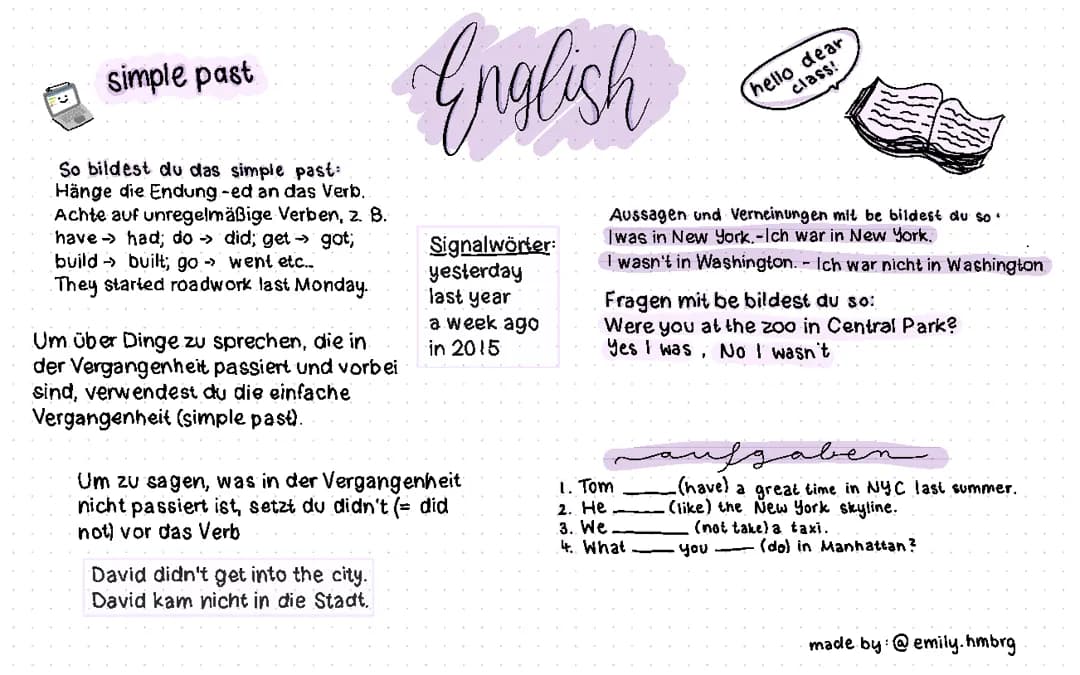 English
simple past
hello dear
class!
So bildest du das simple past:
Hänge die Endung -ed an das Verb.
Achte auf unregelmäßige Verben, z. B.
have → had; do → did; get → got;
build → built; go → went etc...
They started roadwork last Monday.
Um über Dinge zu sprechen, die in
der Vergangenheit passiert und vorbei
sind, verwendest du die einfache
Vergangenheit (simple past).
Um zu sagen, was in der Vergangenheit
nicht passiert ist, setzt du didn't (= did
not) vor das Verb
David didn't get into the city.
David kam nicht in die Stadt.
Signalwörter:
yesterday
last year
a week ago
in 2015
Aussagen und Verneinungen mit be bildest du so:
I was in New York.-Ich war in New York.
I wasn't in Washington. - Ich war nicht in Washington
Fragen mit be bildest du so:
Were you at the zoo in Central Park?
Yes I was , No I wasn't
aufgaben
1. Tom ____(have) a great time in NYC last summer.
2. He ____ (like) the New York skyline.
3. We ____ (not take) a taxi.
4. What ____ you ____ (do) in Manhattan?
made by: @emily.hmbrg